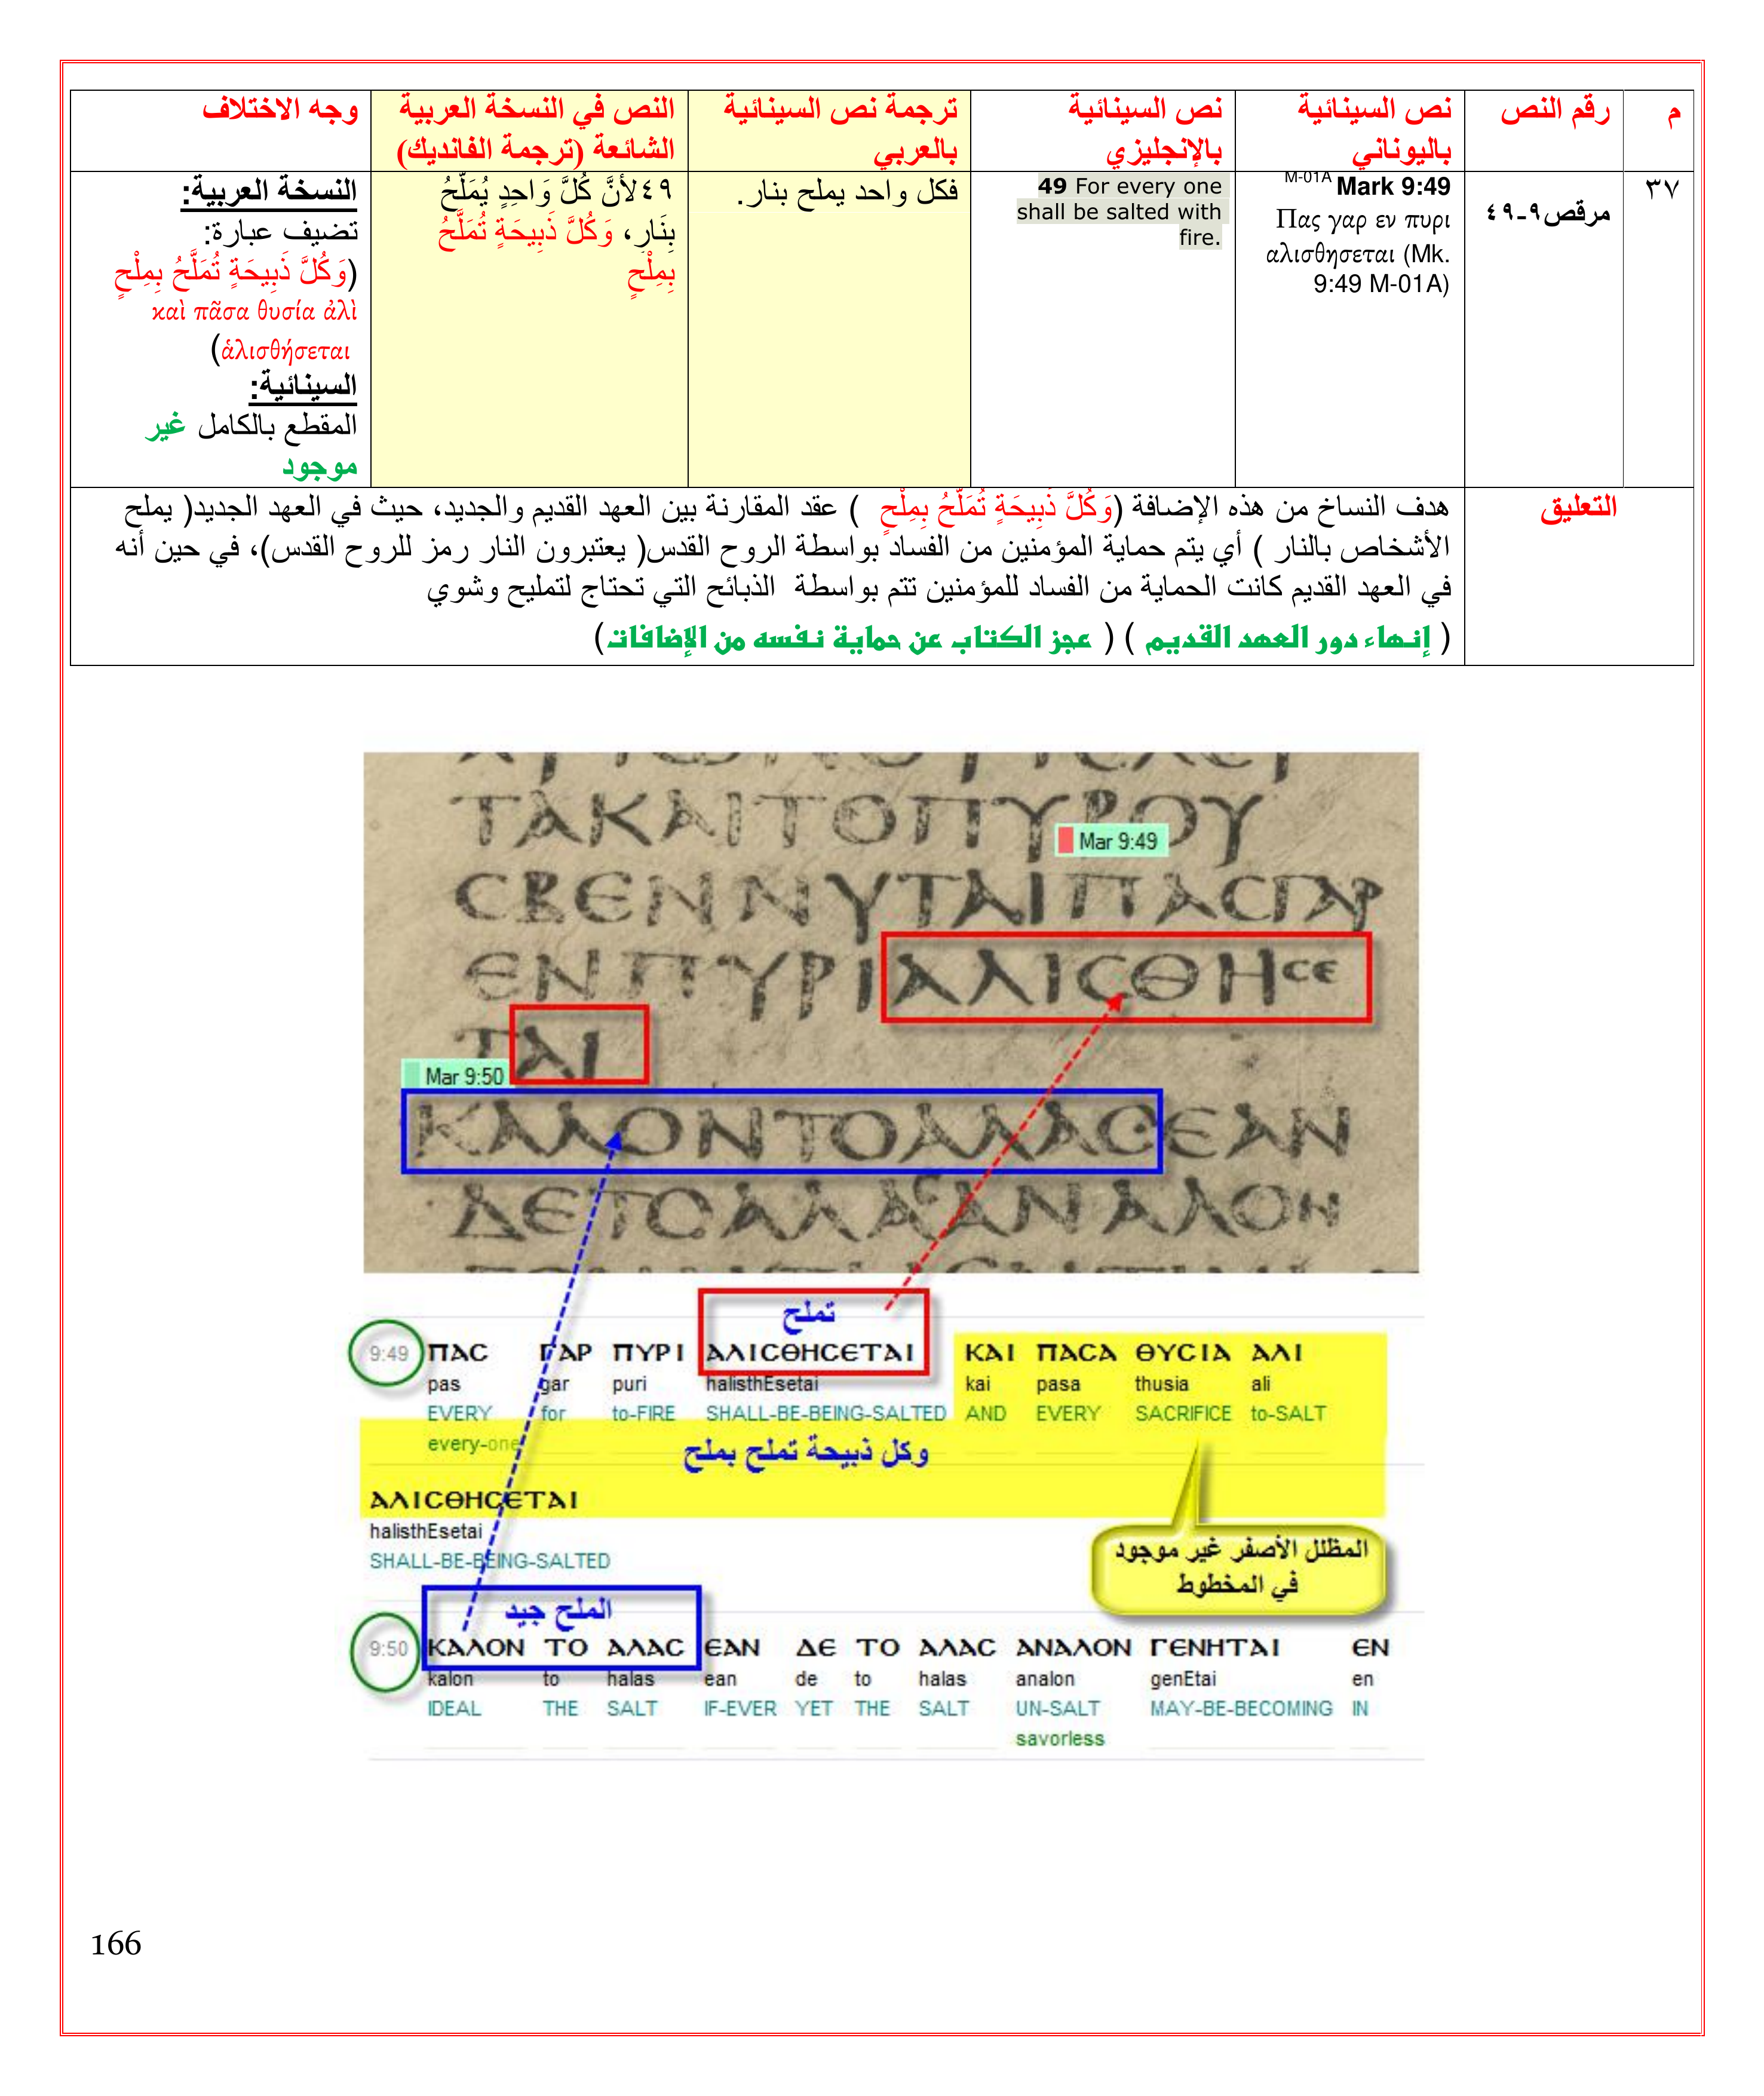 م
رقم النص
نص السينائية
باليوناني
نص السينائية
بالإنجليزي
ترجمة نص السينائية
بالعربي
النص في النسخة العربية
الشائعة (ترجمة الفانديك)
وجه الاختلاف
٣٧
مرقص٩-٤٩
M-01A Mark 9:49
Πας γαρ εν πυρι
αλισθησεται (Mk.
9:49 M-01A)
49 For every one
shall be salted with
fire.
فكل واحد يملح بنار.
٤٩لأَنَّ كُلَّ وَاحِدٍ يُمَلَّحُ
بِنَارٍ، وَكُلَّ ذَبِيحَةٍ تُمَلَّحُ
بِمِلْحٍ
النسخة العربية:
تضيف عبارة:
(وَكُلَّ ذَبِيحَةٍ تُمَلَّحُ بِمِلْحٍ
καὶ πᾶσα θυσία ἁλὶ
ἁλισθήσεται)
السينائية:
المقطع بالكامل غير
موجود
التعليق
هدف النساخ من هذه الإضافة (وَكُلَّ ذَبِيحَةٍ تُمَلَّحُ بِمِلْحٍ ) عقد المقارنة بين العهد القديم والجديد، حيث في العهد الجديد( يملح
الأشخاص بالنار ) أي يتم حماية المؤمنين من الفساد بواسطة الروح القدس( يعتبرون النار رمز للروح القدس)، في حين أنه
في العهد القديم كانت الحماية من الفساد للمؤمنين تتم بواسطة الذبائح التي تحتاج لتمليح وشوي
( إنهاء دور العهد القديم ) ( عجز الكتاب عن حماية نفسه من الإضافات)
ΤΑΚΑΙΤΟΠΥΡΟΥ
Mar 9:49
CΒΕΝΝΥΤΑΙΠΑCΓΑΡ
ΕΝΠΥΡΙΑΛΙCΘΗCΕ
ΤΑΙ
Mar 9:50
ΚΑΛΟΝΤΟΑΛΑCΕΑΝ
ΔΕΤΟΑΛΑCΑΝΑΛΟΝ
تملح
9:49 ΠΑC ΓΑΡ ΠΥΡΙ ΑΛΙCΘΗCΕΤΑΙ ΚΑΙ ΠΑCΑ ΘΥCΙΑ ΑΛΙ
pas gar puri halisthEsetai kai pasa thusia ali
EVERY for to-FIRE SHALL-BE-BEING-SALTED AND EVERY SACRIFICE to-SALT
every-one
وكل ذبيحة تملح بملح
ΑΛΙCΘΗCΕΤΑΙ
halisthEsetai
SHALL-BE-BEING-SALTED
المظلل الأصفر غير موجود
في المخطوط
الملح جيد
9:50 ΚΑΛΟΝ ΤΟ ΑΛΑC ΕΑΝ ΔΕ ΤΟ ΑΛΑC ΑΝΑΛΟΝ ΓΕΝΗΤΑΙ ΕΝ
kalon to halas ean de to halas analon genEtai en
IDEAL THE SALT IF-EVER YET THE SALT UN-SALT MAY-BE-BECOMING IN
savorless
166